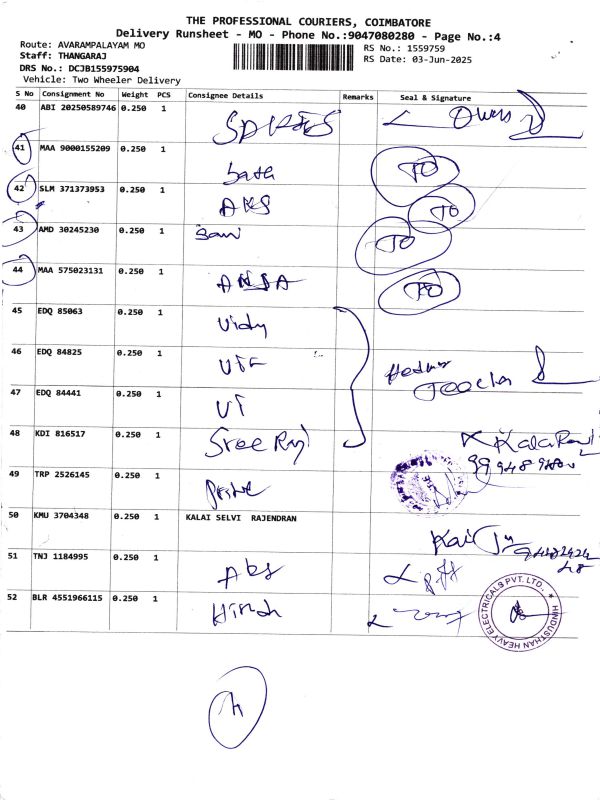 THE PROFESSIONAL COURIERS, COIMBATORE
Delivery Runsheet - MO - Phone No.:9047080280 - Page No.:4
Route: AVARAMPALAYAM MO
Staff: THANGARAJ
DRS No.: DCJB155975904
Vehicle: Two Wheeler Delivery
RS No.: 1559759
RS Date: 03-Jun-2025
S No Consignment No Weight PCS Consignee Details Remarks Seal & Signature
40 ABI 20250589746 0.250 1
41 MAA 9000155209 0.250 1 TO
42 SLM 371373953 0.250 1 AKS TO
43 AMD 30245230 0.250 1 TO
44 MAA 575023131 0.250 1 TO
45 EDQ 85063 0.250 1 Vidy
46 EDQ 84825 0.250 1
47 EDQ 84441 0.250 1 VT
48 KDI 816517 0.250 1 Sree Raj
49 TRP 2526145 0.250 1
50 KMU 3704348 0.250 1 KALAI SELVI RAJENDRAN
51 TNJ 1184995 0.250 1 Aks
52 BLR 4551966115 0.250 1
HINDUSTHAN HEAVY ELECTRICALS PVT. LTD.,